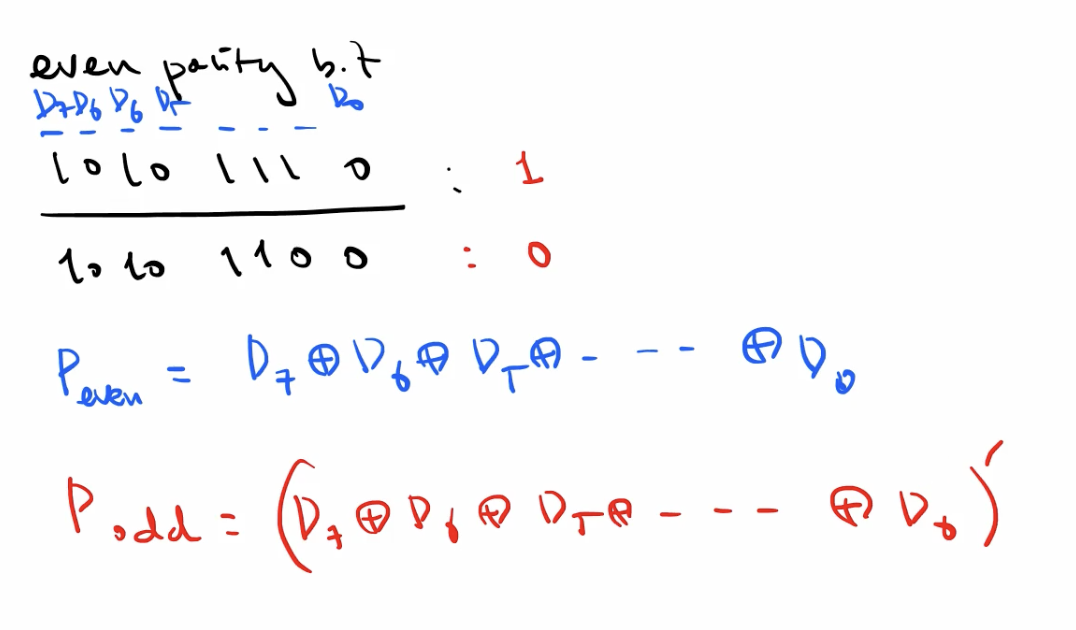 even parity bit
D₇ D₆ D₆ D₅ D₀
1 0 1 0 1 1 1 0 : 1
1 0 1 0 1 1 0 0 : 0
P_even = D₇ ⊕ D₆ ⊕ D₅ ⊕ - - - ⊕ D₀
P_odd = (D₇ ⊕ D₆ ⊕ D₅ ⊕ - - - ⊕ D₀)'